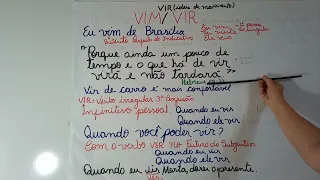 VIR (ideia de movimento)
VIM / VIR
Eu vim de Brasília
Pretérito Perfeito do Indicativo
"Porque ainda um pouco de
tempo e o que há de vir
virá e não tardará."
Hebreus
Vir de carro é mais confortável
VIR = Verbo irregular 3ª Conjugação
Infinitivo pessoal Quando eu vir
Quando ele vir
Quando você poder vir?
Com o verbo VER no Futuro do Subjuntivo
Quando eu vir
Quando ele vir
Quando eu vir Marta, darei o presente.